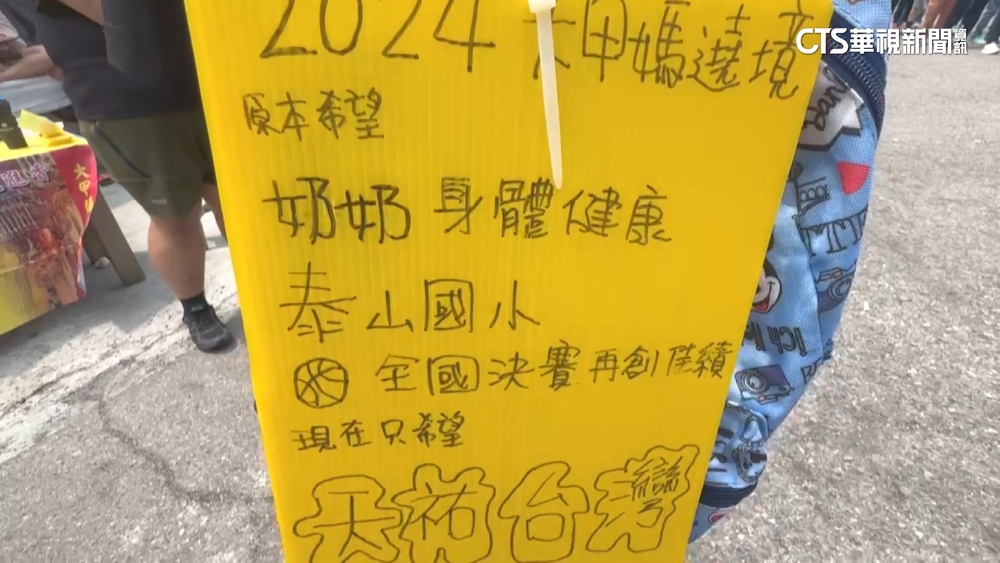 CTS華視新聞資訊
2024大甲媽遶境
原本希望
奶奶 身體健康
泰山國小
全國決賽 再創佳績
現在只希望
天祐台灣
大甲
Ich